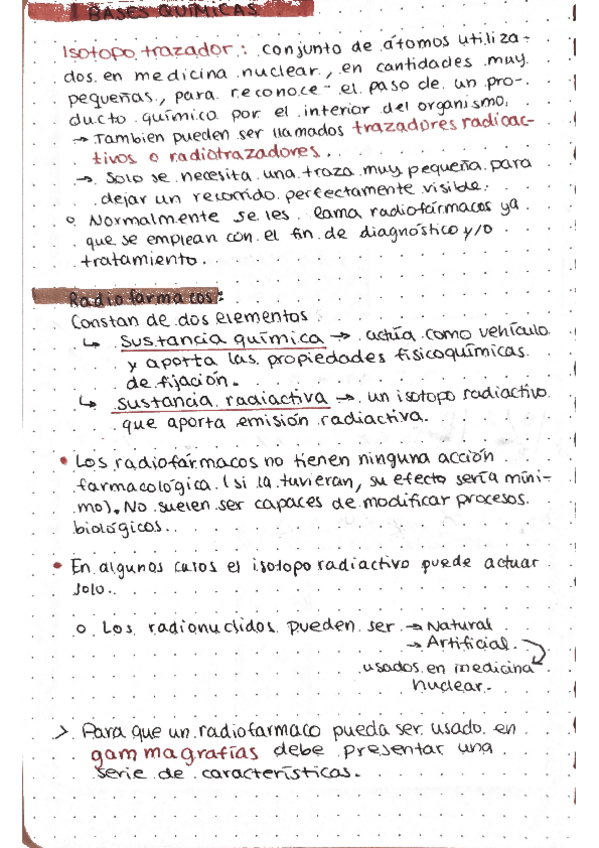 BASES QUÍMICAS
Isotopo trazador: conjunto de átomos utiliza-
dos en medicina nuclear, en cantidades muy
pequeñas, para reconocer el paso de un pro-
ducto químico por el interior del organismo.
→ Tambien pueden ser llamados trazadores radioac-
tivos o radiotrazadores.
→ Solo se necesita una traza muy pequeña para
dejar un recorrido perfectamente visible.
o Normalmente se les llama radiofármacos ya
que se emplean con el fin de diagnóstico y/o
tratamiento.
Radiofarmacos:
Constan de dos elementos
↳ sustancia química → actúa como vehículo
y aporta las propiedades fisicoquímicas
de fijación.
↳ sustancia radiactiva → un isotopo radiactivo
que aporta emisión radiactiva.
• Los radiofármacos no tienen ninguna acción
farmacológica (si la tuvieran, su efecto sería míni-
mo). No suelen ser capaces de modificar procesos
biológicos.
• En algunos casos el isotopo radiactivo puede actuar
solo.
o Los radionuclidos pueden ser → Natural
→ Artificial
usados en medicina
nuclear.
> Para que un radiofarmaco pueda ser usado en
gammagrafías debe presentar una
serie de características.